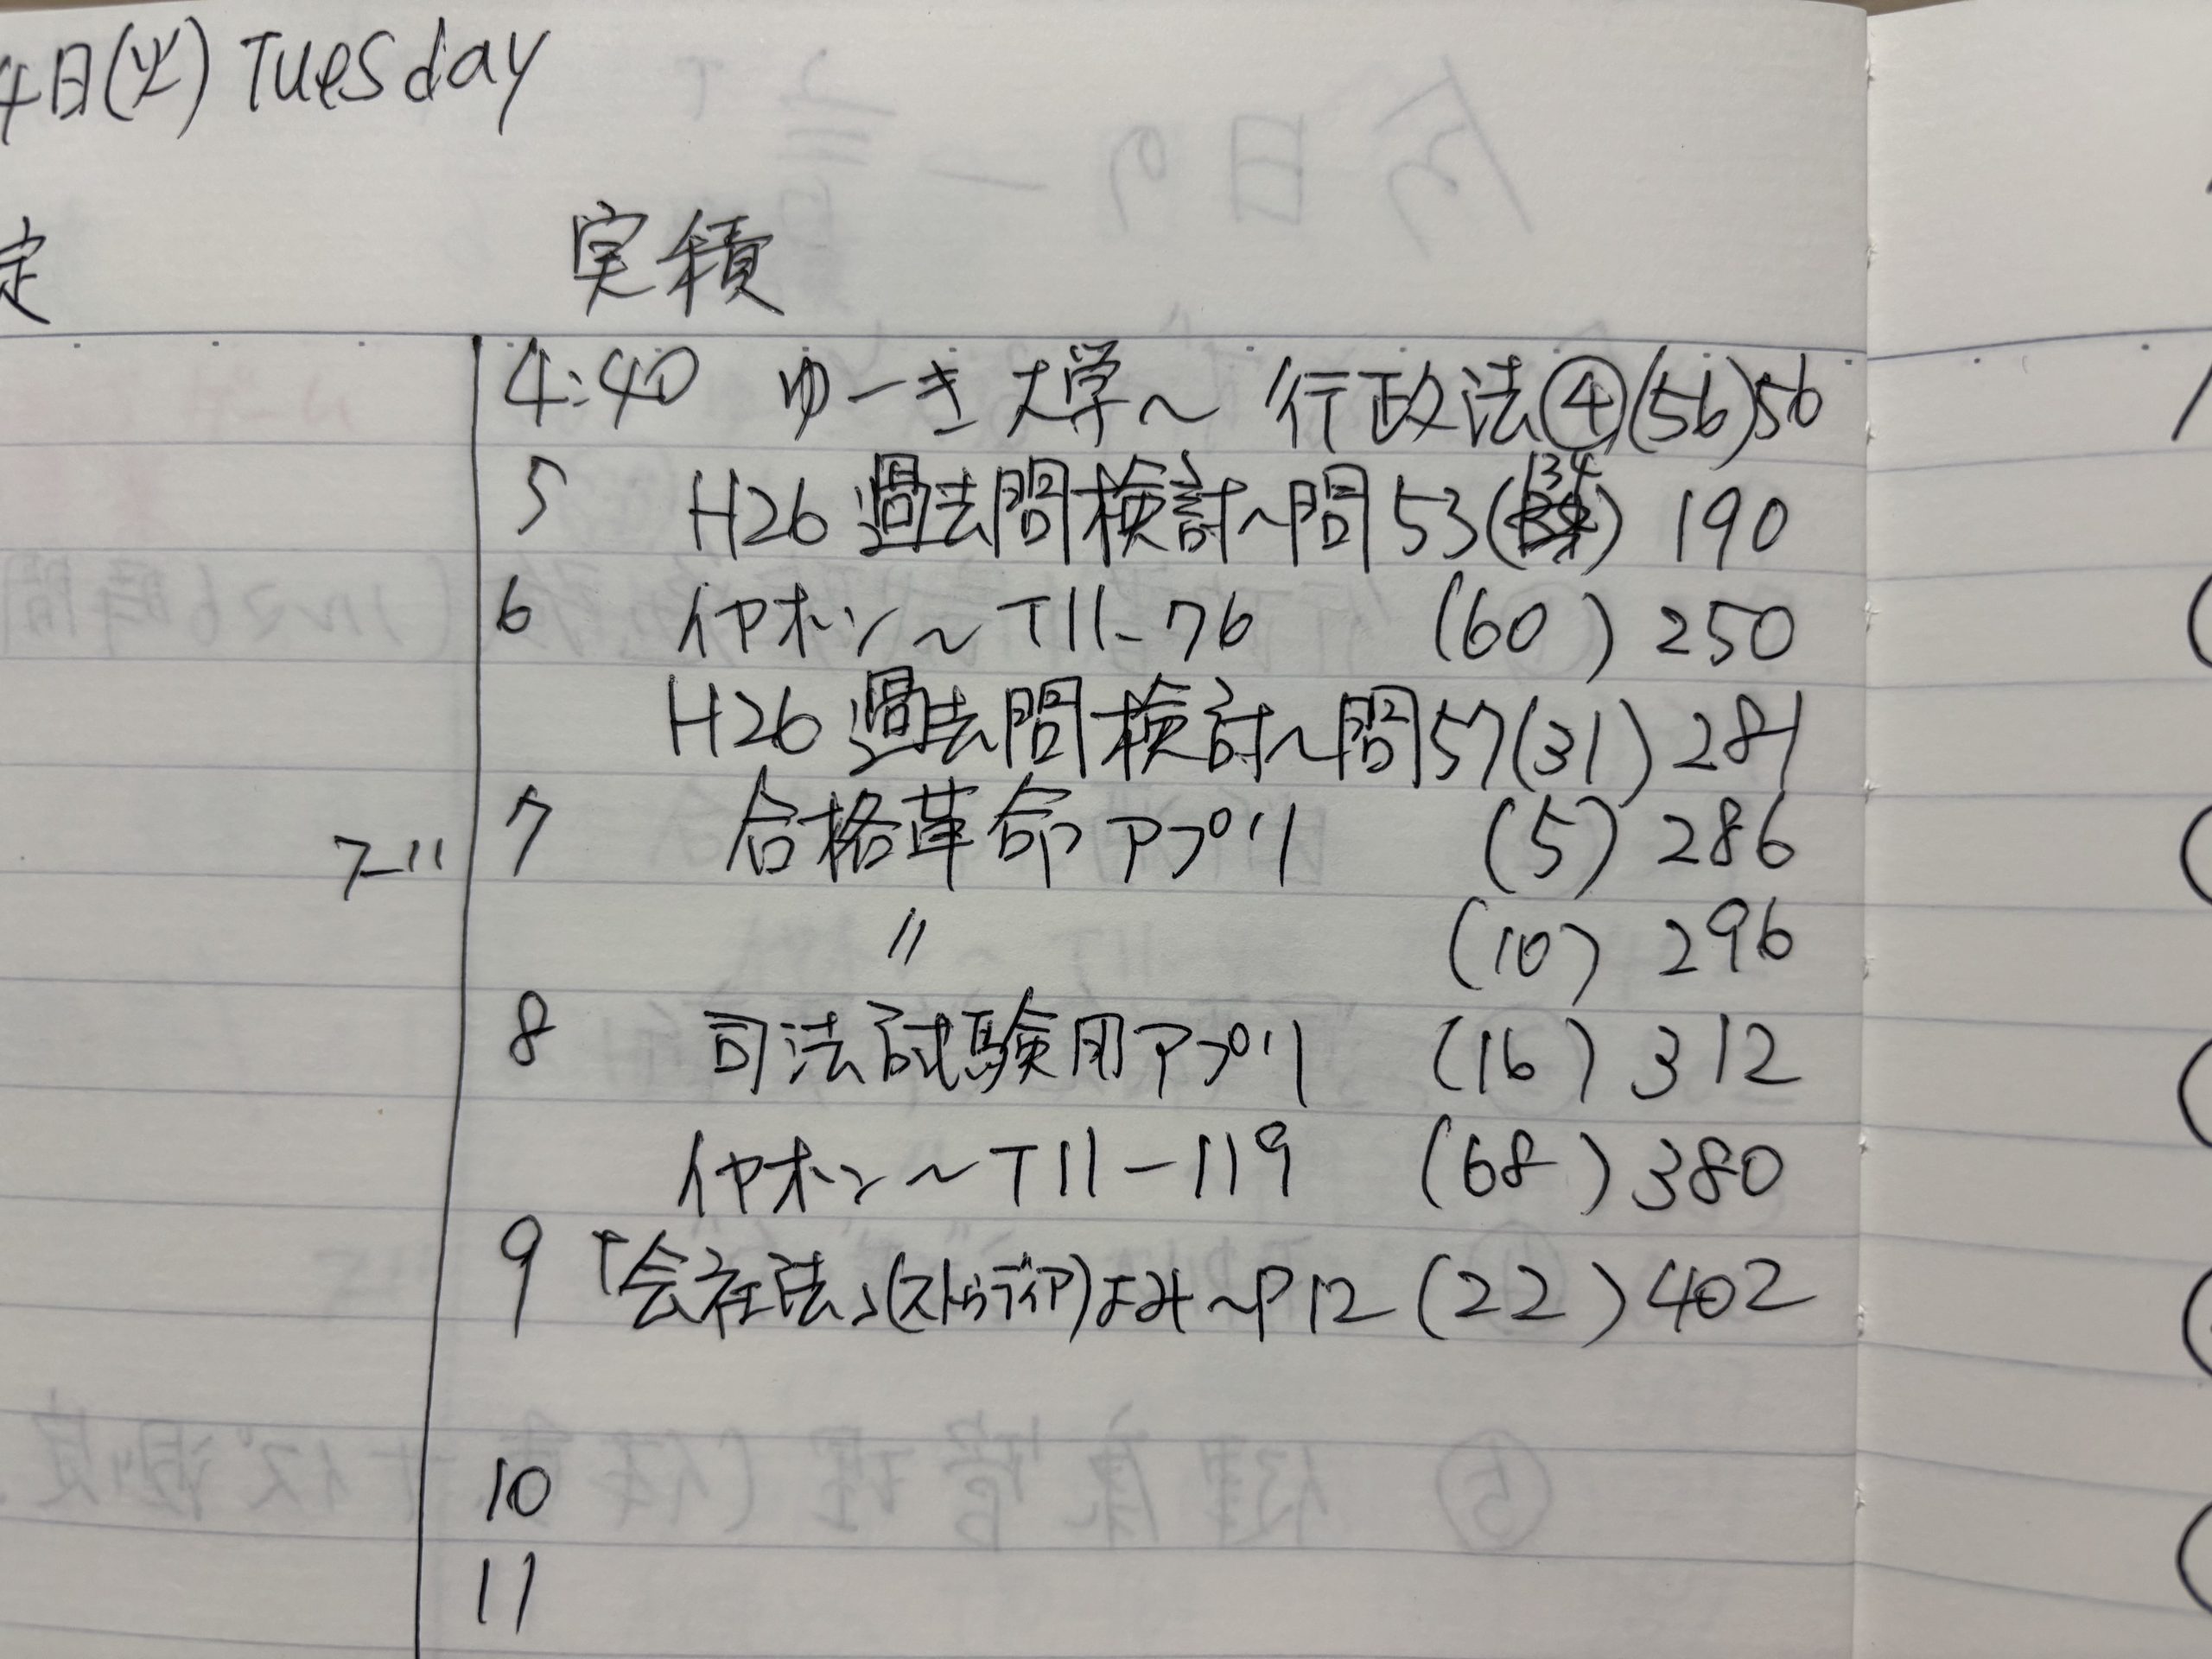 4日(火) Tuesday
定 実積
4:40 ゆーき大学〜 行政法④(56)56
5 H26 過去問検討〜問53(134) 190
6 イヤホン〜T11-76 (60) 250
H26 過去問検討〜問57(31) 281
7 合格革命アプリ (5) 286
〃 (10) 296
8 司法試験用アプリ (16) 312
イヤホン〜T11-119 (68) 380
9 「会社法」(ストゥディア)よみ〜P12 (22) 402
10
11